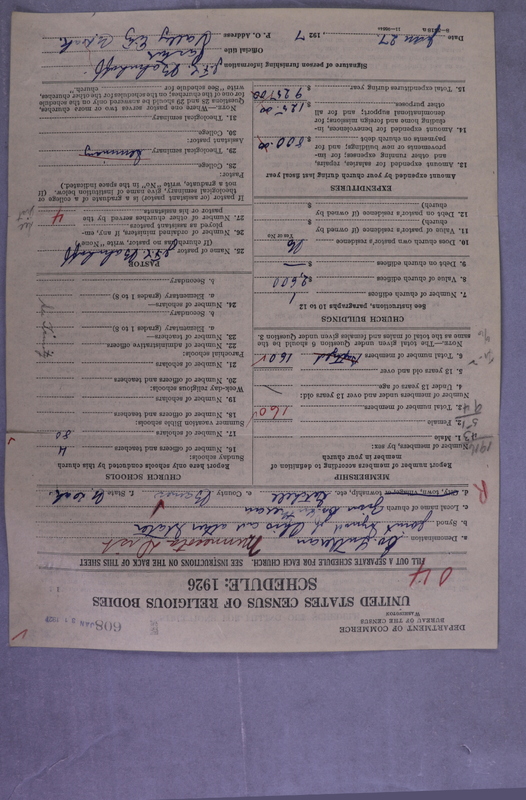 DEPARTMENT OF COMMERCE
BUREAU OF THE CENSUS
WASHINGTON
608 JAN 31 1927
UNITED STATES CENSUS OF RELIGIOUS BODIES
SCHEDULE: 1926
FILL OUT A SEPARATE SCHEDULE FOR EACH CHURCH. SEE INSTRUCTIONS ON THE BACK OF THIS SHEET
a. Denomination Ev. Lutheran
b. Synod Joint Synod of Ohio and other States
c. Local name of church
d. City, town, village, or township, etc.
e. County Barnes
f. State N. Dak.
MEMBERSHIP
Report number of members according to definition of member in your church
Number of members, by sex:
1. Male
2. Female
3. Total number of members 160
Number of members under and over 13 years old:
4. Under 13 years of age
5. 13 years old and over
6. Total number of members 160
Note.—The total given under Question 6 should be the same as the total of males and females given under Question 3.
CHURCH BUILDINGS
See instructions, paragraphs 10 to 12
7. Number of church edifices 1
8. Value of church edifices $ 2,600
9. Debt on church edifices $
10. Does church own pastor's residence No
Yes or No
11. Value of pastor's residence (if owned by church) $
12. Debt on pastor's residence (if owned by church) $
EXPENDITURES
Amount expended by your church during last fiscal year
13. Amount expended for salaries, repairs, and other running expenses; for improvements or new building; and for payments on church debt $ 800.00
14. Amount expended for benevolences, including home and foreign missions; for denominational support; and for all other purposes $ 125.00
15. Total expenditures during year $ 925.00
CHURCH SCHOOLS
Report here only schools conducted by this church
Sunday schools:
16. Number of officers and teachers 4
17. Number of scholars 80
Summer vacation Bible schools:
18. Number of officers and teachers
19. Number of scholars
Week-day religious schools:
20. Number of officers and teachers
21. Number of scholars
Parochial schools:
22. Number of administrative officers
23. Number of teachers—
a. Elementary (grades 1 to 8)
b. Secondary
24. Number of scholars—
a. Elementary (grades 1 to 8)
b. Secondary
PASTOR
25. Name of pastor
(If church has no pastor, write "None")
26. Number of assistant ministers, if any, employed as pastor's assistants
27. Number of other churches served by the pastor or his assistants 4
If pastor (or assistant pastor) is a graduate of a college or theological seminary, give name of institution below. (If not a graduate, write "No" in the space indicated.)
Pastor:
28. College
29. Theological seminary
Assistant pastor:
30. College
31. Theological seminary
Note.—Where one pastor serves two or more churches, Questions 28 and 29 should be answered only on the schedule for one of the churches; on the schedules for the other churches, write "See schedule for church."
Signature of person furnishing information
Official title Pastor
Date Jan 27, 1927
P. O. Address Valley City N. Dak.